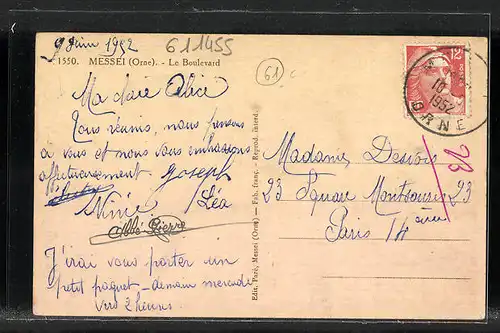 9 Juin 1952
611455
1550. MESSEI (Orne). - Le Boulevard
61
12
10
1952
ORNE
Ma chère Alice
Tous réunis, nous pensons
à vous et nous vous embrassons
affectueusement Joseph
Ninie Léa
Abbé Pierre
J'irai vous porter un
petit paquet - demain mercredi
vers 2 heures.
Edit. Paré, Messei (Orne) — Fab. franç. - Reprod. interd.
Madame Desvois
23 Square Montsouris 23
Paris 14